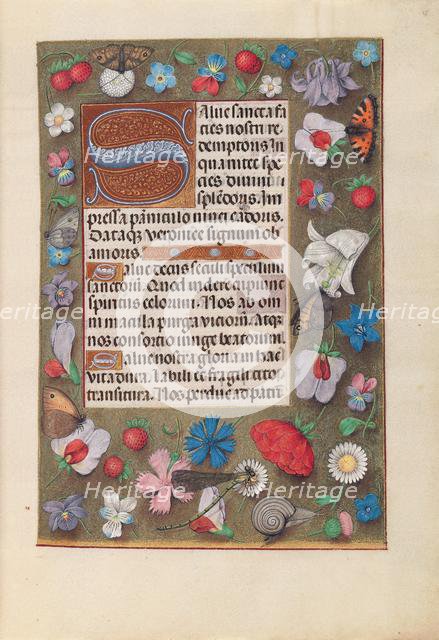 Salue sancta fa
cies nostri re
demptoris. In
qua nitet spe
cies diuini
splendoris. Im
pressa panniculo niuei cadoris.
Dataque veronice signum ob
amoris.
Salue decus seculi speculum
sanctorum. Quod videre cupiunt
spiritus celorum. Nos ab om
ni macula purga viciorum. Atque
nos consortio iunge beatorum.
Salue nostra gloria in hac
vita dura. Labili et fragili cito
transitura. Nos perduc ad patri
Heritage
Heritage
Heritage
Heritage
Heritage
Heritage
Heritage
Heritage
Heritage
Heritage
Heritage
Heritage